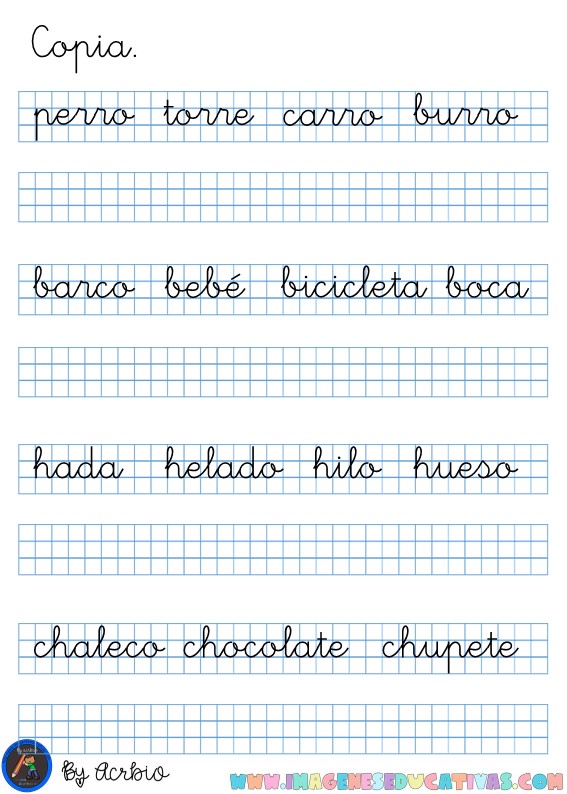 Copia.
perro torre carro burro
barco bebé bicicleta boca
hada helado hilo hueso
chaleco chocolate chupete
By Acrbio
www.imageneseducativas.com